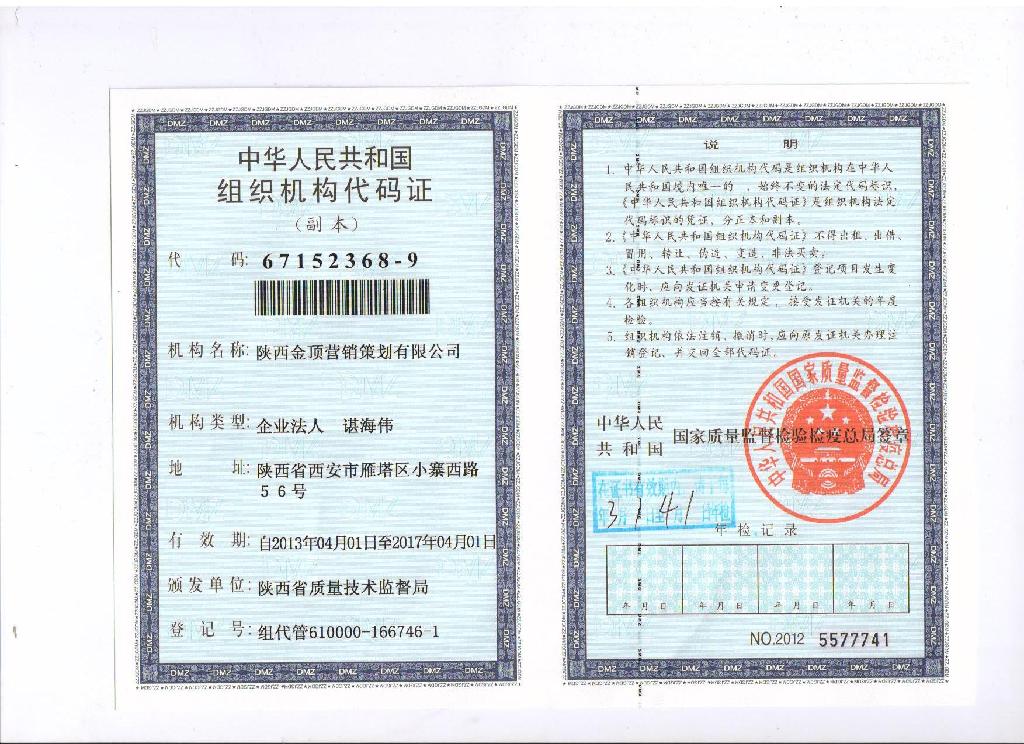 中华人民共和国
组织机构代码证
(副本)
代 码: 67152368-9
机构名称: 陕西金顶营销策划有限公司
机构类型: 企业法人 谌海伟
地 址: 陕西省西安市雁塔区小寨西路
56号
有 效 期: 自2013年04月01日至2017年04月01日
颁发单位: 陕西省质量技术监督局
登 记 号: 组代管610000-166746-1
说 明
1. 中华人民共和国组织机构代码是组织机构在中华人
民共和国境内唯一的、始终不变的法定代码标识,
《中华人民共和国组织机构代码证》是组织机构法定
代码标识的凭证,分正本和副本。
2.《中华人民共和国组织机构代码证》不得出租、出借、
冒用、转让、伪造、变造、非法买卖。
3.《中华人民共和国组织机构代码证》登记项目发生变
化时,应向发证机关申请变更登记。
4. 各组织机构应当按有关规定,接受发证机关的年度
检验。
5. 组织机构依法注销、撤消时,应向原发证机关办理注
销登记,并交回全部代码证。
中华人民
共和国 国家质量监督检验检疫总局签章
中华人民共和国国家质量监督检验检疫总局
在证书有效期内,请于每
年3月1日至4月1日年检
年检记录
年 月 日 年 月 日 年 月 日 年 月 日
NO.2012 5577741